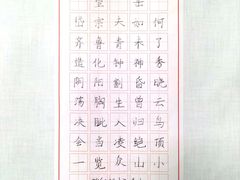 望岳
岱宗夫如何
齐鲁青未了
造化钟神秀
阴阳割昏晓
荡胸生曾云
决眦入归鸟
会当凌绝顶
一览众山小